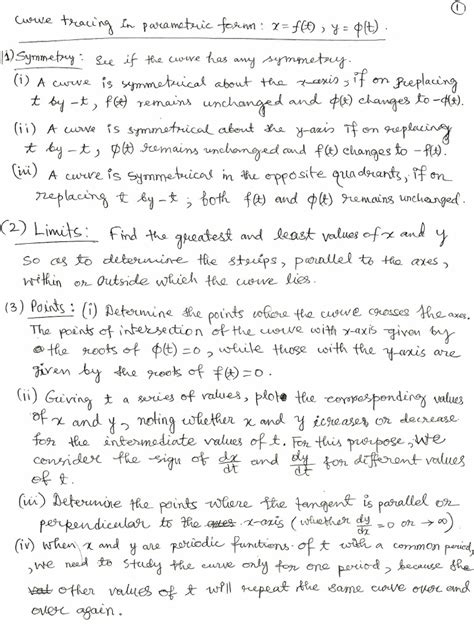 ①
curve tracing in parametric form: x=f(t), y=ϕ(t).
(1) Symmetry: See if the curve has any symmetry.
(i) A curve is symmetrical about the x-axis, if on replacing
t by -t, f(t) remains unchanged and ϕ(t) changes to -ϕ(t).
(ii) A curve is symmetrical about the y-axis if on replacing
t by -t, ϕ(t) remains unchanged and f(t) changes to -f(t).
(iii) A curve is symmetrical in the opposite quadrants, if on
replacing t by -t, both f(t) and ϕ(t) remains unchanged.
(2) Limits: Find the greatest and least values of x and y
so as to determine the strips, parallel to the axes,
within or outside which the curve lies.
(3) Points: (i) Determine the points where the curve crosses the axes.
The points of intersection of the curve with x-axis given by
the roots of ϕ(t)=0, while those with the y-axis are
given by the roots of f(t)=0.
(ii) Giving t a series of values, plot the corresponding values
of x and y, noting whether x and y icreases or decrease
for the intermediate values of t. For this purpose, we
consider the sign of dx/dt and dy/dt for different values
of t.
(iii) Determine the points where the tangent is parallel or
perpendicular to the x-axis (whether dy/dx = 0 or → ∞).
(iv) When x and y are periodic functions of t with a common period,
we need to study the curve only for one period, because the
other values of t will repeat the same curve over and
over again.